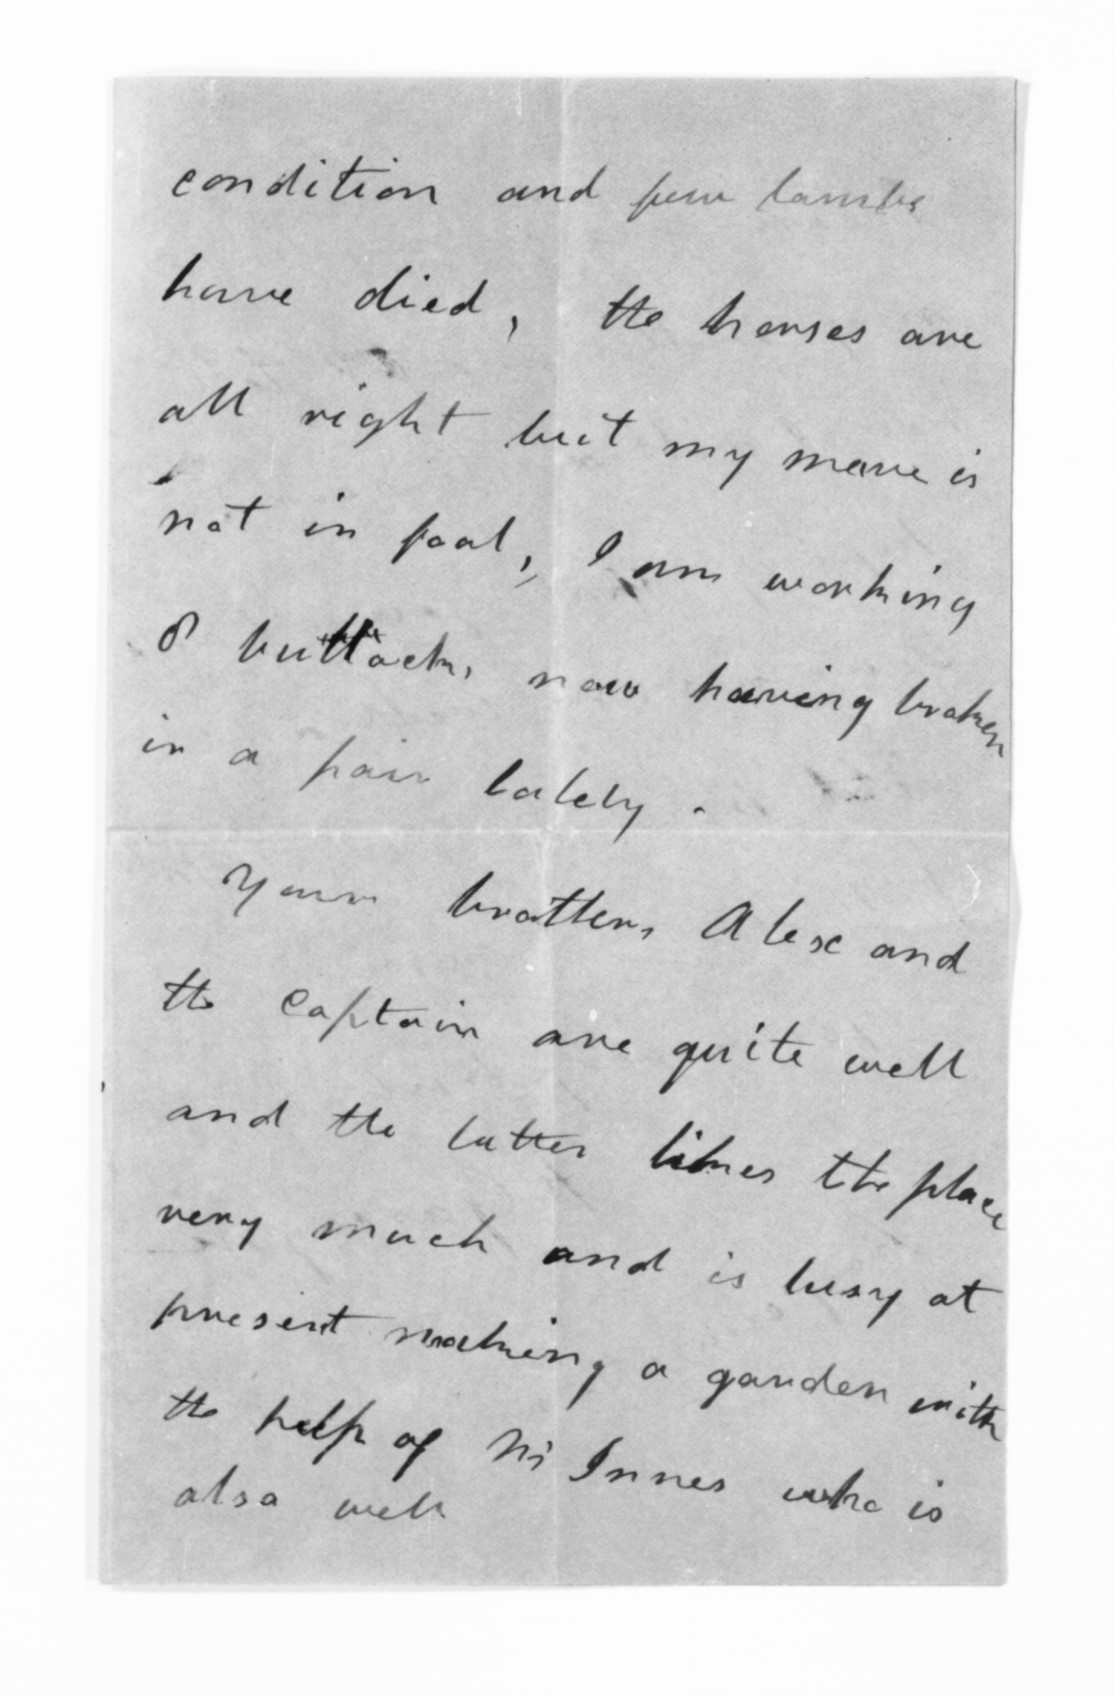 condition and few lambs
have died, the horses are
all right but my mare is
not in foal, I am working
8 bullocks, now having broken
in a pair lately.
Your brothers, Alex and
the Captain are quite well
and the latter likes the place
very much and is busy at
present making a garden with
the help of Mr Innes who is
also well